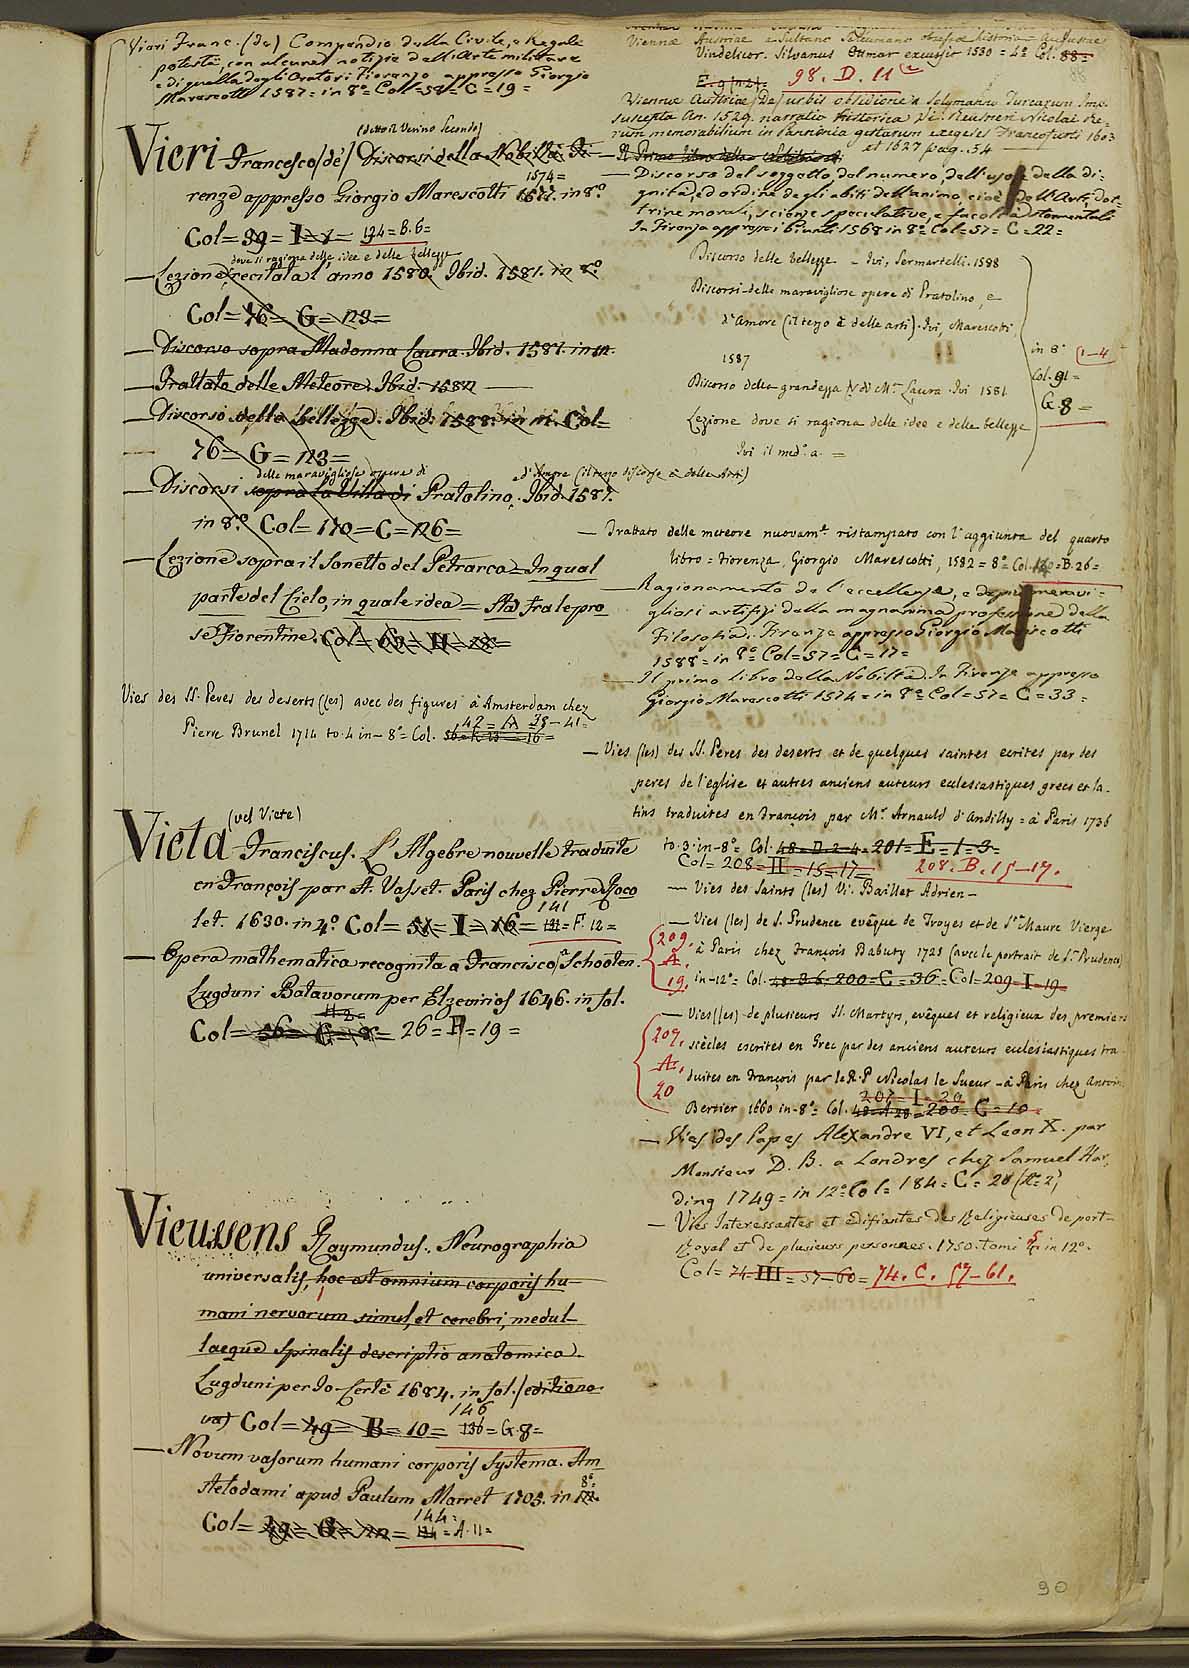 Vieri Franc. (de) Compendio della Civile, e Regale
potestà con alcune notizie dell'Arte militare
e di quella degli Oratori Fiorenza appresso Giorgio
Marescotti 1587 = in 8º Col = 58 = C = 19 =
(detto il Verino Secondo)
Vieri Francesco (de) Discorsi della Nobiltà Fi-
1574 =
renze appresso Giorgio Marescotti 1577. in 8º
Col = 39 = I = 194 = B. 6 =
dove si ragiona delle idee e delle bellezze
— Lezione recitata l'anno 1580. Ibid. 1581. in 8º
Col = 76 = G = 123 =
— Discorso sopra Madonna Laura. Ibid. 1581. in 12.
— Trattato delle Meteore. Ibid. 1582
— Discorso delle bellezze. Ibid. 1588. in 12. Col =
76 = G = 123 =
delle maravigliose opere di e d'Amore (il terzo discorso è delle Arti)
— Discorsi sopra la Villa di Pratolino. Ibid. 1587.
in 8º Col = 170 = C = 126 =
— Lezione sopra il Sonetto del Petrarca = In qual
parte del Cielo, in quale idea = Sta fra le pro
se Fiorentine. Col =
Vies des SS. Peres des deserts (les) avec des figures à Amsterdam chez
42 = A = 38 - 41 =
Pierre Brunel 1714 to. 4 in - 8º = Col.
(vel Viete)
Vieta Franciscus. L'Algebre nouvelle traduite
en François par A. Vasset. Paris chez Pierre Roco
141
let. 1630. in 4º Col = 51 = I = 16 = 131 = F. 12 =
— Opera mathematica recognita a Francisco a Schooten.
Lugduni Batavorum per Elzevirios 1646. in fol.
Col = 56 = G = 8 = 26 = F = 19 =
Vieussens Raymundus. Neurographia
universalis, hoc est omnium corporis hu-
mani nervorum simul, et cerebri, medul-
laeque spinalis descriptio anatomica.
Lugduni per Jo. Certè 1684. in fol. (editio no-
146
va) Col = 49 = B = 10 = 136 = G. 8 =
— Novum vasorum humani corporis Systema. Am
8º =
stelodami apud Paulum Marret 1705. in 12.
144 =
Col = 134 = A. 11 =
Viennæ Austriae a Sultano Solimano obsessæ historia Augustae
Vindelicor. Silvanus Ottmar excussit 1530 = 4º Col. 88 =
88
E. 9 (n. 2) = 98. D. 11 (2
Viennae Austriae (De) urbis obsidione a Solymanno Turcarum Imp.
suscepta An. 1529. narratio historica Vi. Reusneri Nicolai Re-
rum memorabilium in Pannonia gestarum exegeses Francofurti 1603
et 1627 pag. 54
— Il Primo libro della Nobiltà
— Discorso del soggetto, del numero, dell'uso, e della di-
gnità, ed ordine degli abiti dell'animo, cioè dell'Arti, dot-
trine morali, scienze speculative, e facoltà stomentali
In Firenze appresso i Giunti 1568 in 8º Col = 57 = C = 22 =
Discorso delle bellezze - Ivi, Sermartelli. 1588
Discorsi delle maravigliose opere di Pratolino, e
d'Amore (il terzo è delle arti). Ivi, Marescotti
1587
Discorso della grandezza &c di M.ª Laura. Ivi 1581
Lezione dove si ragiona delle idee e delle bellezze
Ivi il med.º a. =
in 8º (1-4
Col. 91 =
G. 8 =
— Trattato delle meteore nuovam.te ristampato con l'aggiunta del quarto
libro = Fiorenza, Giorgio Marescotti, 1582 = 8º = Col. = B. 26 =
Ragionamento de l'eccellenze, e de più meravi-
gliosi artifizj della magnanima professione della
Filosofia. Firenze appresso Giorgio Marescotti
1588 = in 8º = Col = 57 = C = 17 =
— Il primo libro della Nobiltà. In Firenze appresso
Giorgio Marescotti 1574 = in 8º Col = 57 = C = 33 =
— Vies (les) des SS. Peres des deserts et de quelques saintes ecrites par des
peres de l'eglise et autres anciens auteurs eclesiastiques grecs et la-
tins traduites en François par Mr. Arnauld d'Andilly = à Paris 1736
to. 3. in - 8º = Col. 48 = D. 2-4 = 201 = E = 1 = 3 =
Col = 208 = II = 15 = 17 = 208. B. 15-17.
— Vies des Saints (les) Vi. Baillet Adrien -
— Vies (les) de S. Prudence evêque de Troyes et de Ste Maure Vierge
à Paris chez François Babuty 1725 (avec le portrait de S. Prudence)
in - 12º = Col. 200 = C = 36 = Col = 209 - I - 19 -
209.
A.
19.
— Vies (les) de plusieurs SS. Martyrs, evêques et religieux des premiers
siècles escrites en Grec par des anciens auteurs eclesiastiques tra-
duites en François par le R. P. Nicolas le Sueur - à Paris chez Antoin
207 - I - 20
Bertier 1660 in - 8º = Col. = 200 = C = 10 =
207.
A.
20
— Vies des Papes Alexandre VI, et Leon X. par
Monsieur D. B. a Londres chez Samuel Har,
ding 1749 = in 12º = Col = 184 = C = 28 (N. 2)
— Vies Interessantes et Edifiantes des Religieuses de port-
Royal et de plusieurs personnes. 1750. tomi 5 in 12º.
Col = 74 III = 57 - 60 = 74. C. 57 - 61.
90